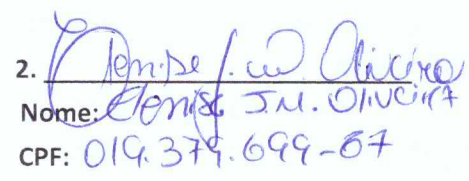 2. Denise J. M. Oliveira
Nome: Denise J.M. Oliveira
CPF: 019.379.699-67